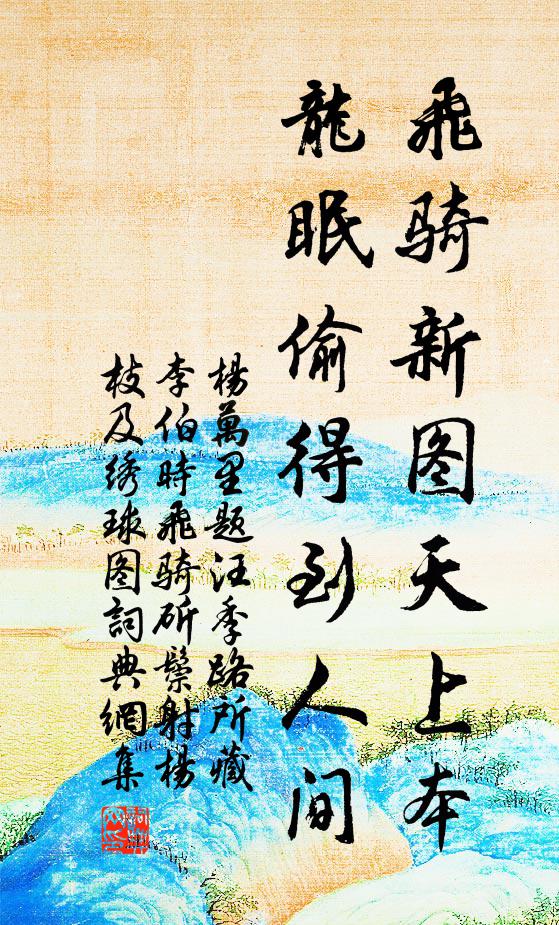 飛骑新图天上本
龍眠偷得到人间
楊萬里题汪季路所藏
李伯時飛骑斫鬃射楊
枝及绣球图詞典網集